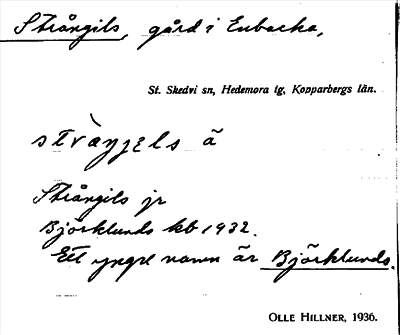 Strångils, gård i Enbacka,
St. Skedvi sn, Hedemora tg, Kopparbergs län.
stràŋgels ä
Strångils jr
Björklunds kb 1932.
Ett yngre namn är Björklunds.
OLLE HILLNER, 1936.